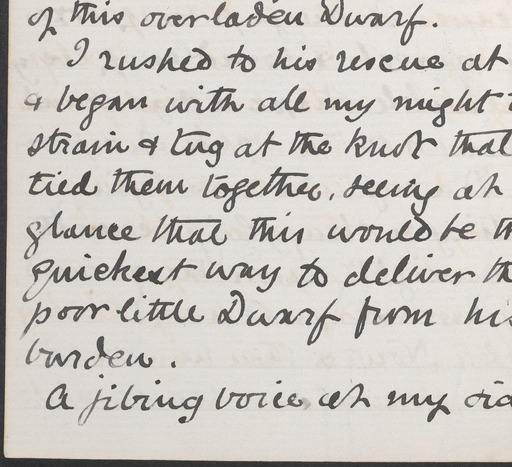 of this overladen Dwarf.
I rushed to his rescue at
& began with all my might
strain & tug at the knot that
tied them together, seeing at
glance that this would be
quickest way to deliver
poor little Dwarf from his
burden.
A jibing voice at my